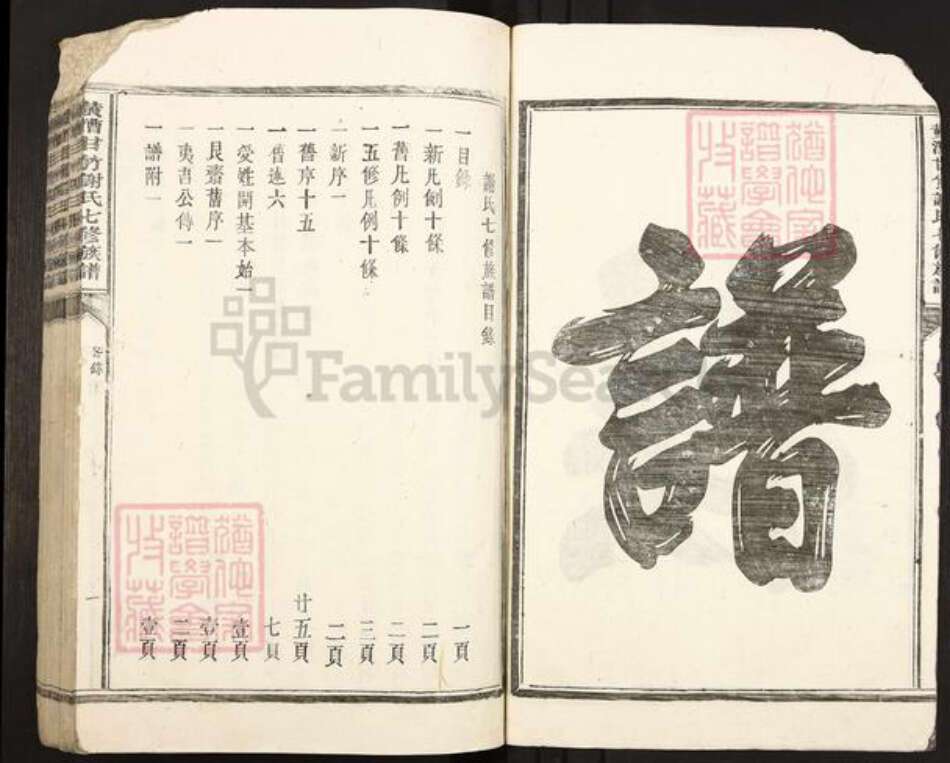 譜
謝氏七修族譜目錄
一目錄 一頁
一新凡例十條 二頁
一舊凡例十條 二頁
一五修凡例十條 三頁
一新序一 二頁
一舊序十五 廿五頁
一舊述六 七頁
一受姓開基本始一 壹頁
一艮齋舊序一 壹頁
一夷吾公傳一 二頁
一譜附一 壹頁
謝氏七修族譜
目錄
一
FamilySea